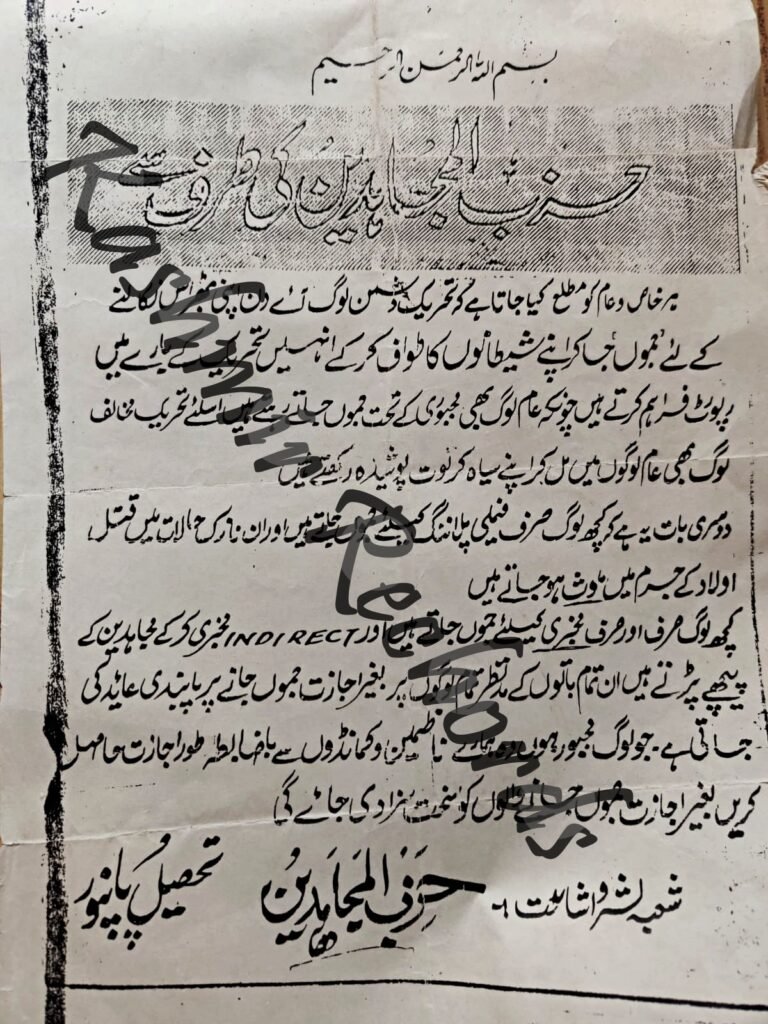 بسم اللہ الرحمن الرحیم
حزب المجاہدین کی طرف سے
ہر خاص و عام کو مطلع کیا جاتا ہے کہ تحریک دشمن لوگ آئے دن اپنی بھڑاس نکالنے
کے لئے جموں جا کر اپنے شیطانوں کا طواف کر کے انہیں تحریک کے بارے میں
رپورٹ فراہم کرتے ہیں چونکہ عام لوگ بھی مجبوری کے تحت جموں جاتے رہتے ہیں اسلئے تحریک مخالف
لوگ بھی عام لوگوں میں مل کر اپنے سیاہ کرتوت پوشیدہ رکھتے ہیں
دوسری بات یہ ہے کہ کچھ لوگ صرف فیملی پلاننگ کیلئے جموں جاتے ہیں اور ان نازک حالات میں قتل
اولاد کے جرم میں ملوث ہو جاتے ہیں
کچھ لوگ صرف اور صرف مخبری کیلئے جموں جاتے ہیں اور INDIRECT مخبری کر کے مجاہدین کے
پیچھے پڑتے ہیں ان تمام باتوں کے مدنظر تمام لوگوں پر بغیر اجازت جموں جانے پر پابندی عائد کی
جاتی ہے۔ جو لوگ مجبور ہوں وہ ہمارے ناظمین و کمانڈروں سے باضابطہ طور اجازت حاصل
کریں بغیر اجازت جموں جانے والوں کو سخت سزا دی جائے گی
شعبہ نشر و اشاعت :- حزب المجاہدین تحصیل پانپور
Kashmir Rechords